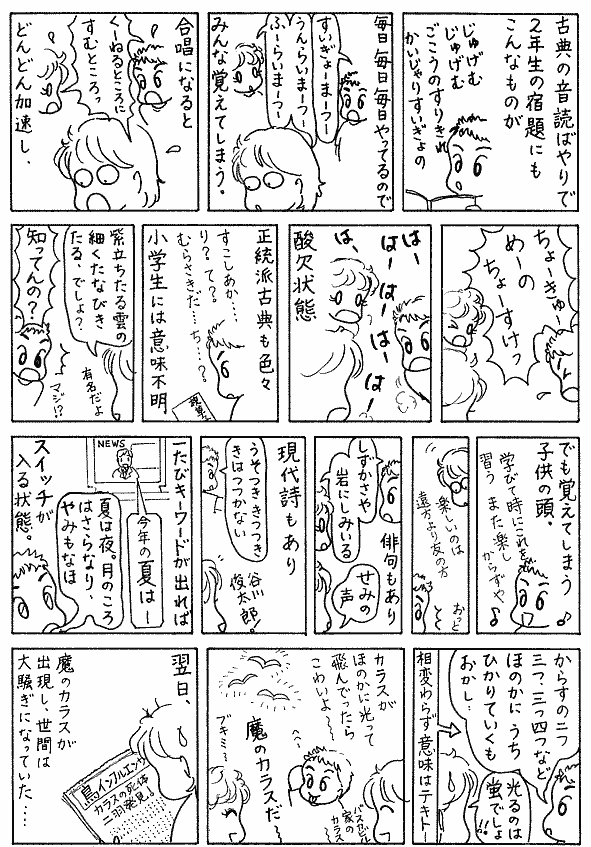 古典の音読ばやりで
2年生の宿題にも
こんなものが
じゅげむ
じゅげむ
ごこうのすりきれ
かいじゃりすいぎょの
毎日毎日毎日やってるので
すいぎょーまーつー
うんらいまーつー
ふーらいまーつー
みんな覚えてしまう。
合唱になると
くーねるところに
すむところっ
どんどん加速し、
ちょーきゅー
めーの
ちょーすけっ
はー
はーはーはーはー
は、
酸欠状態
正統派古典も色々
すこしあか‥‥
り?て?‥‥
むらさきだ‥‥ち‥‥?
小学生には意味不明
紫立ちたる雲の
細くたなびき
たる、でしょ?
有名だよ
知ってんの?
マジ!?
でも覚えてしまう
子供の頭。
学びて時にこれを
習う また楽し
からずや
♪
楽しいのは
遠方より友の方
おっと
俳句もあり
しずかさや
岩にしみいる
せみの
声
現代詩もあり
うそつききつつき
きはつつかない
谷川
俊太郎!
一たびキーワードが出れば
NEWS
今年の夏はー
夏は夜。月のころ
はさらなり、
やみもなほ
スイッチが
入る状態。
からすの二つ
三つ、三つ四つなど
ほのかに うち
ひかりていくも
おかし‥
光るのは
蛍でしょ
!!
相変わらず意味はテキトー
カラスが
ほのかに光って
飛んでったら
こわいよ〜〜
魔のカラスだ〜
ブキミ〜
家の
カラス
翌日、
鳥インフルエンザ
カラスの死体
二羽発見
魔のカラスが
出現し、世間は
大騒ぎになっていた‥‥